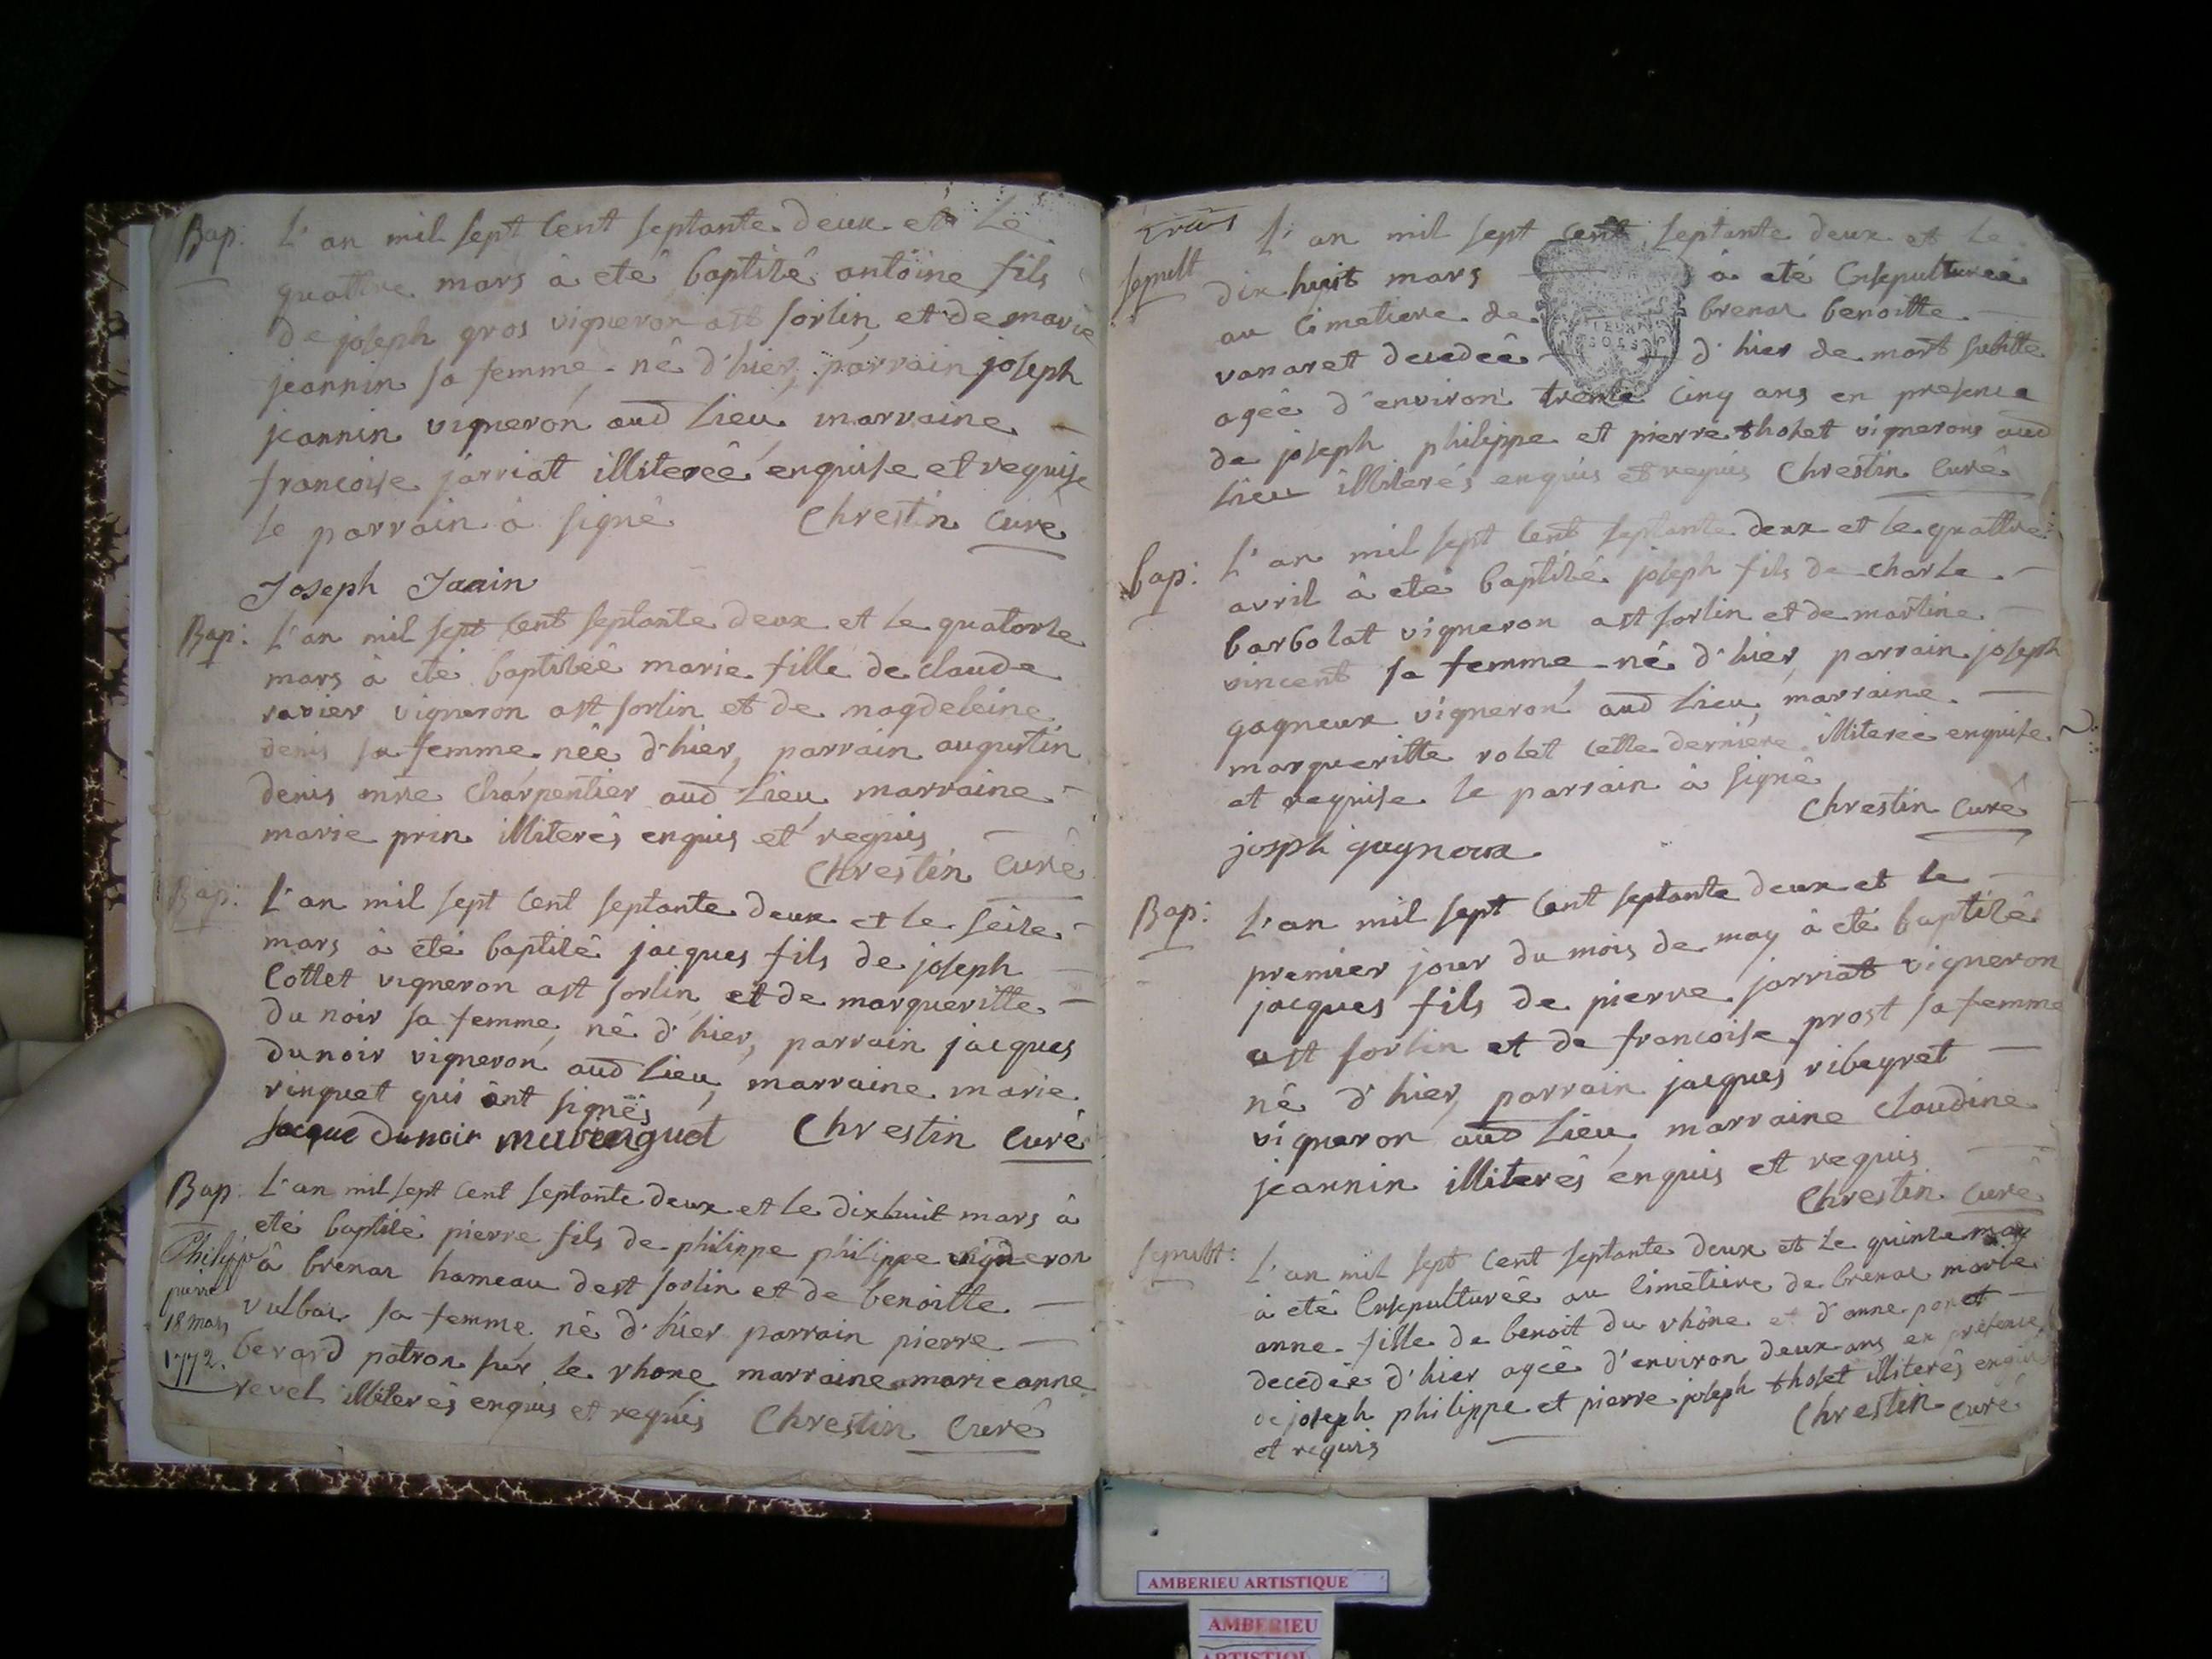 Bap: L'an mil sept Cent septante deux et Le
quattre mars à eté baptisé antoine fils
de joseph gros vigneron a st sorlin et de marie
jeannin sa femme né d'hier, parrain joseph
jeannin vigneron aud Lieu marraine
francoise jarriat illitereé enquise et requise
le parrain à signé Chrestin Curé
Joseph Janin
Bap: L'an mil sept Cent septante deux et Le quatorse
mars à eté baptiséé marie fille de claude
ravier vigneron a st sorlin et de magdeleine
denis sa femme née d'hier, parrain augustin
denis mre Charpentier aud Lieu marraine
marie prin illiterés enquis et requis
Chrestin Curé
Bap: L'an mil sept Cent septante deux et Le seise
mars à eté baptisé jacques fils de joseph
Cottet vigneron a st sorlin et de margueritte
du noir sa femme, né d'hier, parrain jacques
dunoir vigneron aud Lieu, marraine marie
vinguet qui ont signés
Jacque Dunoir Chrestin Curé
Bap: L'an mil sept Cent septante deux et Le dixhuit mars à
eté baptisé pierre fils de philippe philippe vigneron
à brenas hameau de st sorlin et de benoitte
vulbas sa femme né d'hier parrain pierre
berard patron sur le rhone marraine marie anne
revel illiterés enquis et requis Chrestin Curé
Philippe
pierre
18 mars
1772.
trois
sepult L'an mil sept Cent septante deux et Le
dix huit mars à eté Ensepultureé
au Cimetiere de brenas benoitte
vanaret decedeé d'hier de mort subitte
ageé d'environ trente Cinq ans en presence
de joseph philippe et pierre tholet vignerons aud
Lieu illiterés enquis et requis Chrestin Curé
bap: L'an mil sept Cent septante deux et Le quattre
avril à eté baptisé joseph fils de charle
barbolat vigneron a st sorlin et de martine
vincent sa femme né d'hier, parrain joseph
gagneux vigneron aud Lieu, marraine
margueritte rolet cette derniere illitereé enquise
et requise le parrain à signé
Chrestin Curé
josph gagneux
Bap: L'an mil sept Cent septante deux et Le
premier jour du mois de may à eté baptisé
jacques fils de pierre jarriat vigneron
a st sorlin et de francoise prost sa femme
né d'hier, parrain jacques ribeyret
vigneron aud Lieu, marraine Claudine
jeannin illiterés enquis et requis
Chrestin Curé
sepult: L'an mil sept Cent septante deux et Le quinse may
à eté Ensepultureé au Cimetiere de brenas marie
anne fille de benoit du rhône et d'anne ponet
decedeé d'hier ageé d'environ deux ans en presence
de joseph philippe et pierre joseph tholet illiterés enquis
et requis Chrestin Curé
AMBERIEU ARTISTIQUE
AMBERIEU
ARTISTIQUE